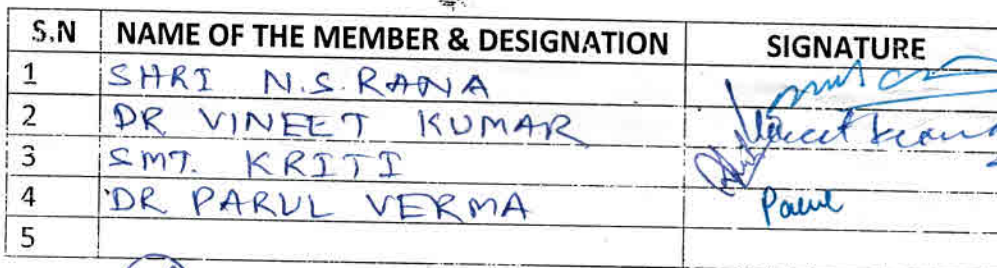 S.N NAME OF THE MEMBER & DESIGNATION SIGNATURE
1 SHRI N.S. RANA
2 DR VINEET KUMAR Vineet Kumar
3 SMT. KRITI
4 DR PARUL VERMA Parul
5